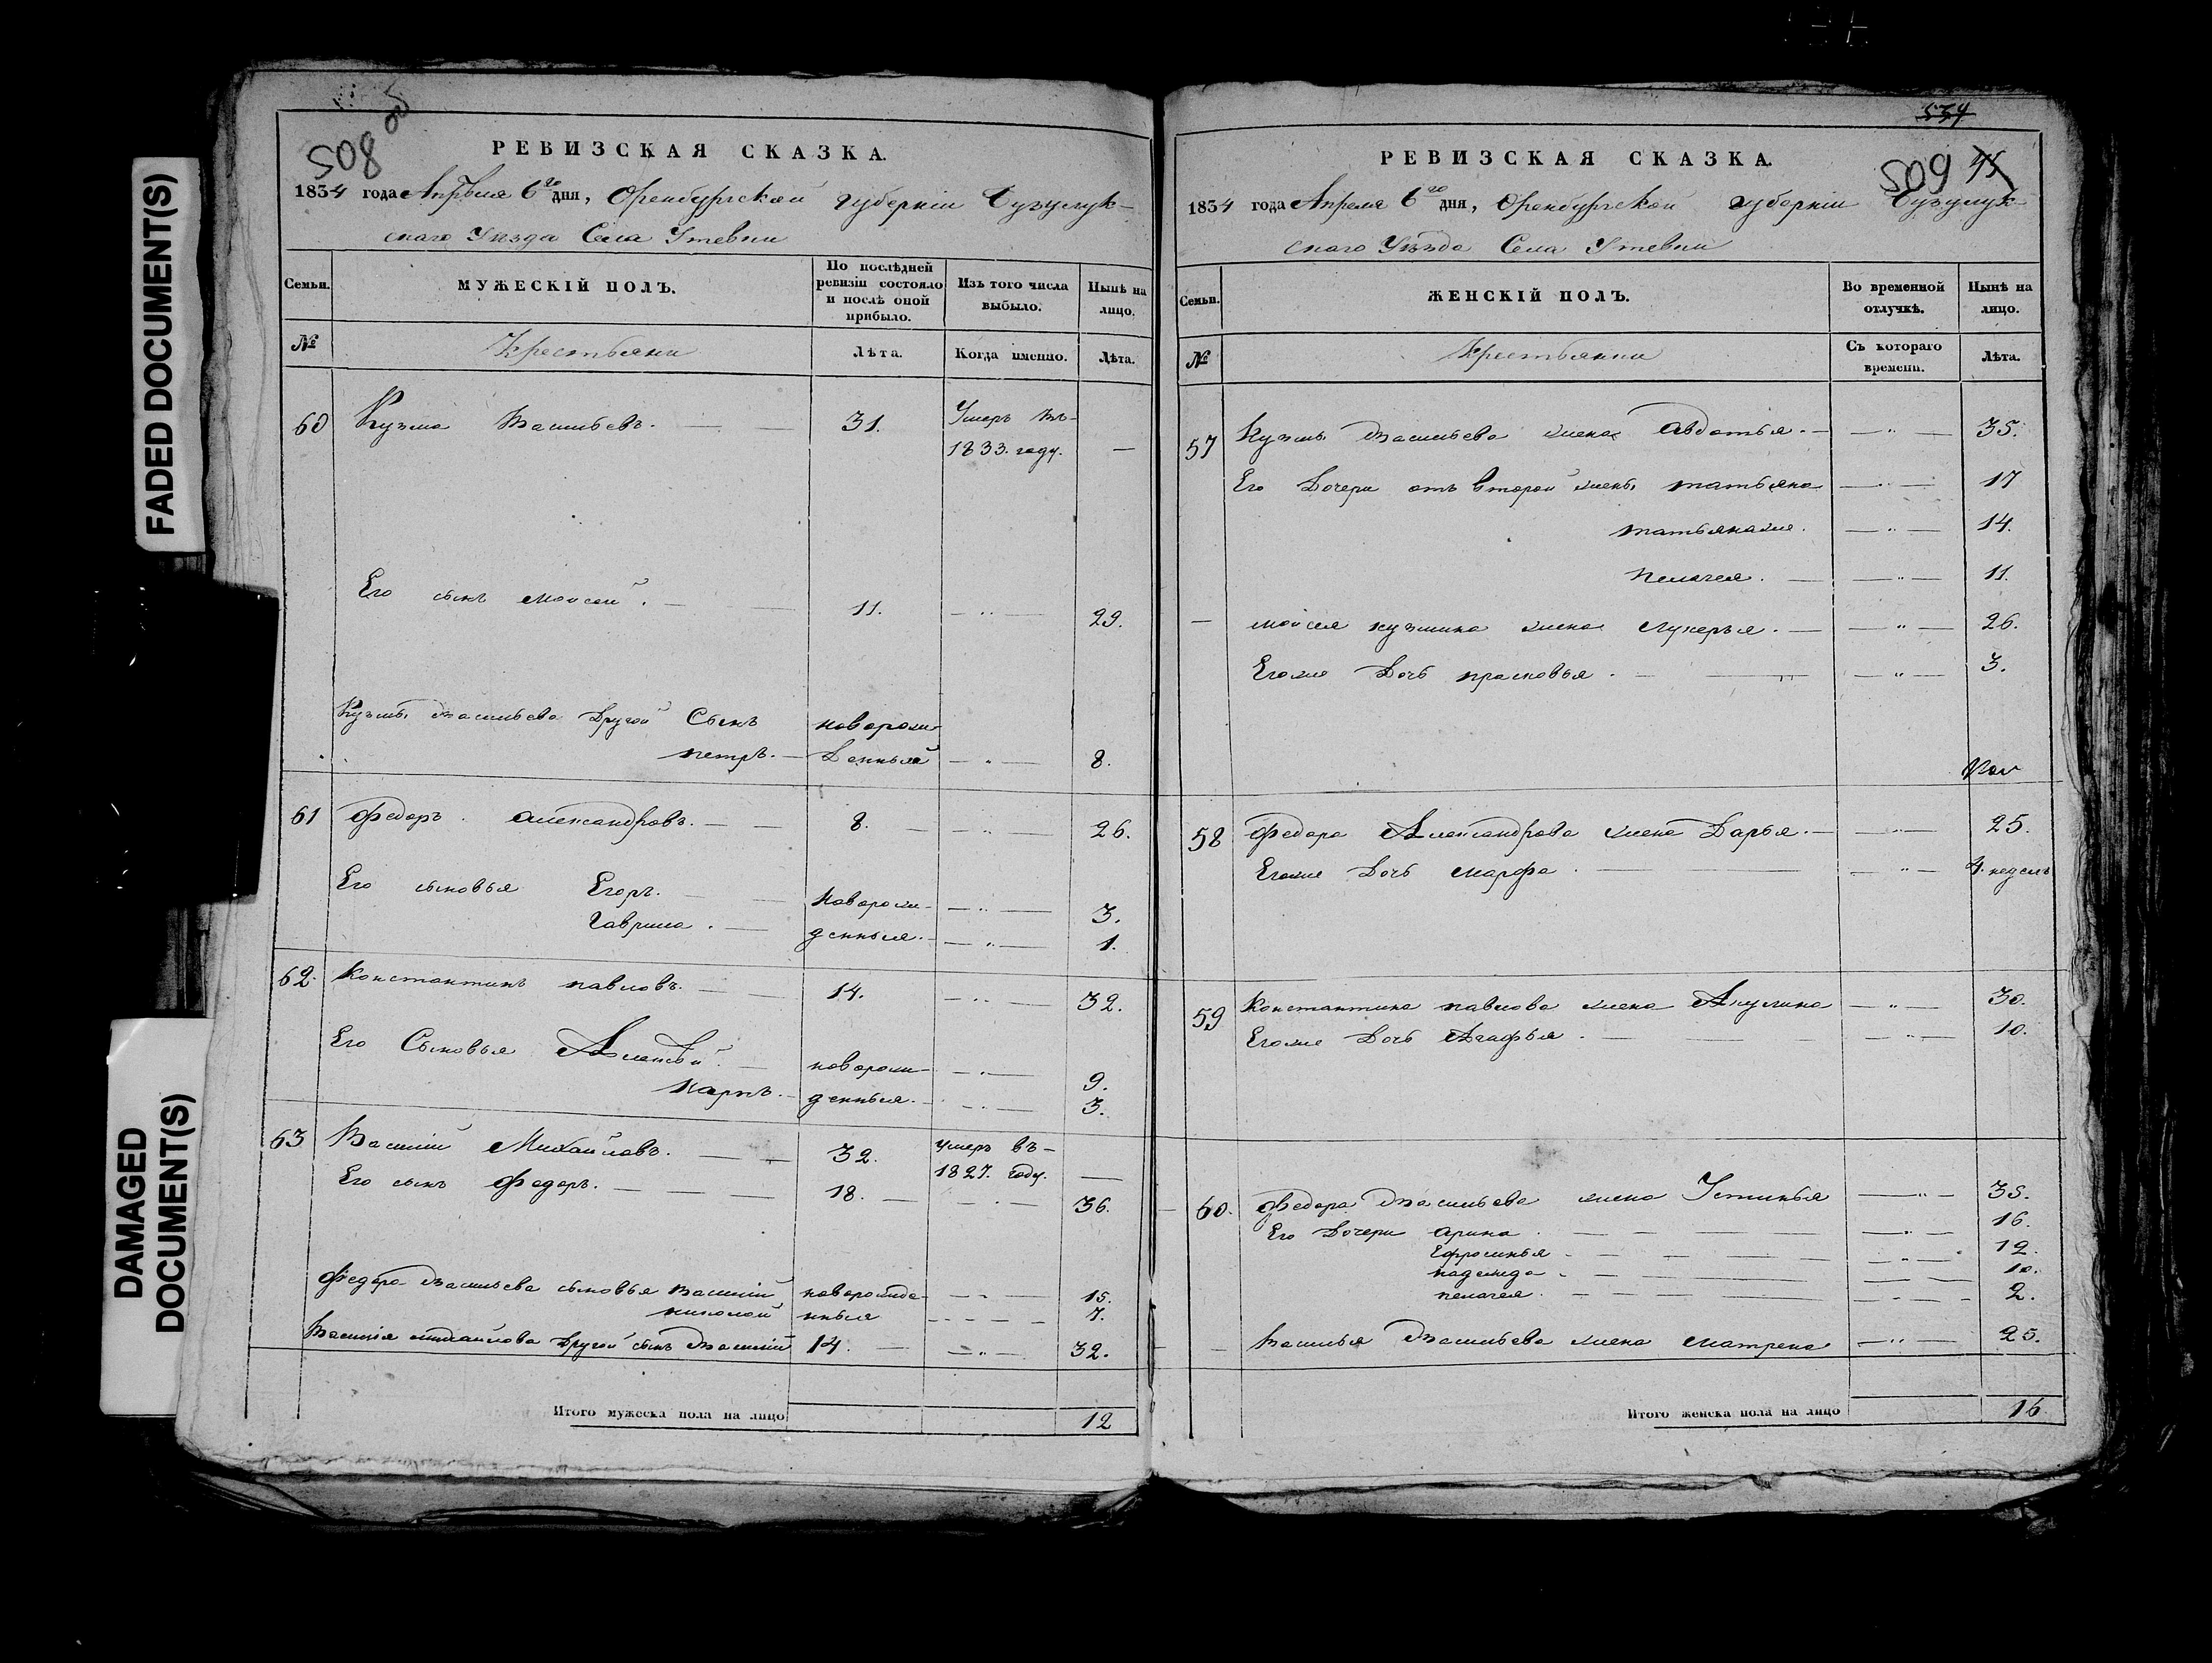 FADED DOCUMENT(S)
DAMAGED
DOCUMENT(S)
508 об
РЕВИЗСКАЯ СКАЗКА.
1834 года Апреля 6го дня, Оренбургской губернии Бузулук-
скаго Уезда Села Утевки
Семьи. МУЖЕСКІЙ ПОЛЪ. По послѣдней ревизіи состояло и послѣ оной прибыло. Изъ того числа выбыло. Нынѣ на лицо.
№ Крестьяни Лѣта. Когда именно. Лѣта.
60 Кузма Васильевъ. 31. Умеръ въ-
1833. году. —
Его сынъ моисей. 11. 29.
Кузьмы Васильева Другой Сынъ новорож-
петръ. Денный 8.
61 Федоръ Александровъ. 8. 26.
Его сыновья Егоръ. Новорож- 3.
Гаврила. денныя. 1.
62. Константинъ павловъ. 14. 32.
Его Сыновья Алексѣй новорож- 9.
Карпъ. денныя. 3.
63 Василий Михайловъ. 32. умеръ въ-
1827. году. —
Его сынъ Федоръ. 18. 36.
Федора Васильева сыновья Василий новорожде- 15.
николай нныя 7.
Василия михайлова Другой сынъ Василий 14. 32.
Итого мужеска пола на лицо 12
534
509
РЕВИЗСКАЯ СКАЗКА.
1834 года Апреля 6го дня, Оренбургской губернии Бузулук-
скаго Уѣзда Села Утевки
Семьи. ЖЕНСКІЙ ПОЛЪ. Во временной отлучкѣ. Нынѣ на лицо.
№ Крестьянки Съ котораго времени. Лѣта.
57 Кузмы Васильева жена Авдотья. 35.
Его Дочери отъ второй жены татьяна 17
татьянаже. 14.
пелагея. 11.
— моисея кузмина жена Лукерья. 26.
Егоже Дочь прасковья. 3.
58 Федора Александрова жена Дарья. 25.
Егоже Дочь марфа. 4. неделъ
59 Константина павлова жена Акулина 30.
Егоже Дочь Агафья. 10.
60. Федора Васильева жена Устинья 35.
Его Дочери арина. 16.
Ефросинья 12.
надежда 10.
пелагея. 2.
— Василья Васильева жена матрена 25.
Итого женска пола на лицо 16